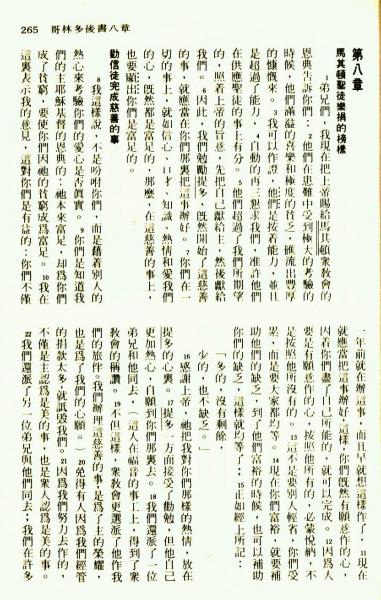 265 哥林多後書八章
第八章
馬其頓聖徒樂捐的榜樣
1弟兄們，我現在把上帝賜給馬其頓衆教會的
恩典告訴你們：2他們在患難中受到極大的考驗的
時候，他們滿溢的喜樂和極度的貧乏，匯流出豐厚
的慷慨來。3我可以作證，他們是按着能力，並且
是超過了能力，4自動的再三懇求我們，准許他們
在供應聖徒的事上有分。5他們超過了我們所期望
的，照着上帝的旨意，先把自己獻給主，然後獻給
我們。6因此，我們勉勵提多，旣然開始了這慈善
的事，就應當在你們那裏把這事辦好。7你們在一
切的事上，就如信心、口才、知識、熱情和愛我們
的心，旣然都是富足的，那麼，在這慈善的事上，
也要顯出你們是富足的。
勸信徒完成慈善的事
8我這樣說，不是吩咐你們，而是藉着別人的
熱心來考驗你們的愛心是否眞實。9你們是知道我
們的主耶穌基督的恩典的：祂本來富足，卻爲你們
成了貧窮，要使你們因祂的貧窮成爲富足。10我在
這裏表示我的意見，這對你們是有益的：你們不僅
一年前就在辦這事，而且早就想這樣作了，11現在
就應當把這事辦好；這樣，你們旣然有願意作的心，
因着你們盡了自己所能的，就可以完成。12因爲人
要是有願意作的心，按照他所有的，必蒙悅納，不
是按照他所沒有的。13這不是要別人輕省，你們受
累，而是要大家都均等。14現在你們富裕，就要補
助他們的缺乏，到了他們富裕的時候，也可以補助
你們的缺乏，這樣就均等了；15正如經上所記：
「多的，沒有剩餘，
少的，也不缺乏。」
16感謝上帝，祂把我對你們那樣的熱情，放在
提多的心裏。17提多一方面接受了勸勉，但他自己
更加熱心，自願到你們那裏去。18我們還派了一位
弟兄和他同去，（這人在福音的事工上，得到了衆
教會的稱讚。19不但這樣，衆教會更選派了他作我
們的旅伴。我們辦理這慈善的事，是爲了主的榮耀，
也是爲了我們的心願。）20免得有人因爲我們經管
的捐款太多，就詆毀我們。21因爲我們努力去作的，
不僅是主認爲是美的事，也是衆人認爲是美的事。
22我們還派了另一位弟兄與他們同去；我們在許多